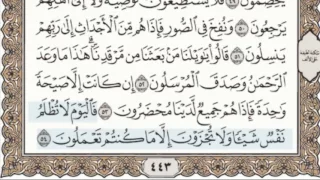 يَخِصِّمُونَ ٤٩ فَلَا يَسْتَطِيعُونَ تَوْصِيَةً وَلَا إِلَىٰ أَهْلِهِمْ
يَرْجِعُونَ ٥٠ وَنُفِخَ فِي الصُّورِ فَإِذَا هُم مِّنَ الْأَجْدَاثِ إِلَىٰ رَبِّهِمْ
يَنسِلُونَ ٥١ قَالُوا يَا وَيْلَنَا مَن بَعَثَنَا مِن مَّرْقَدِنَا هَٰذَا مَا وَعَدَ
الرَّحْمَٰنُ وَصَدَقَ الْمُرْسَلُونَ ٥٢ إِن كَانَتْ إِلَّا صَيْحَةً
وَاحِدَةً فَإِذَا هُمْ جَمِيعٌ لَّدَيْنَا مُحْضَرُونَ ٥٣ فَالْيَوْمَ لَا تُظْلَمُ
نَفْسٌ شَيْئًا وَلَا تُجْزَوْنَ إِلَّا مَا كُنتُمْ تَعْمَلُونَ ٥٤
٤٤٣